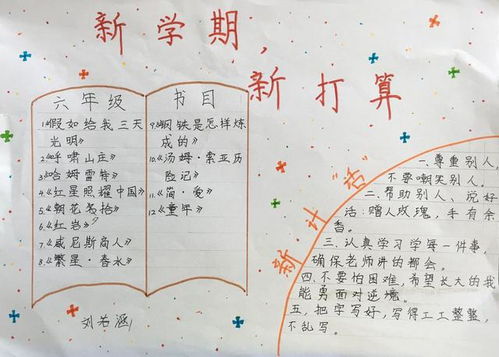 新学期，
新打算
六年级
书目
1.《假如给我三天
光明》
2.《呼啸山庄》
3.《哈姆雷特》
4.《红星照耀中国》
5.《朝花夕拾》
6.《红岩》
7.《威尼斯商人》
8.《繁星·春水》
9.《钢铁是怎样炼
成的》
10.《汤姆·索亚历
险记》
11.《简·爱》
12.《童年》
刘若涵
新计"舌"
一、尊重别人，
不要嘲笑别人。
二、帮助别人、俗话
活：赠人玫瑰，手有余
香。
三、认真学习学每一件事，
确保老师讲的都会。
四、不要怕困难，希望长大的我
能勇面对逆境。
五、把字写好，写得工工整整，
不乱写。